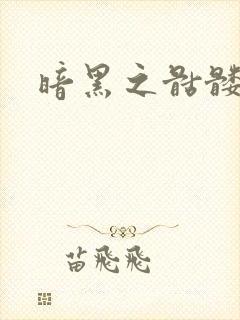 暗黑之骷髅
苗飛飛